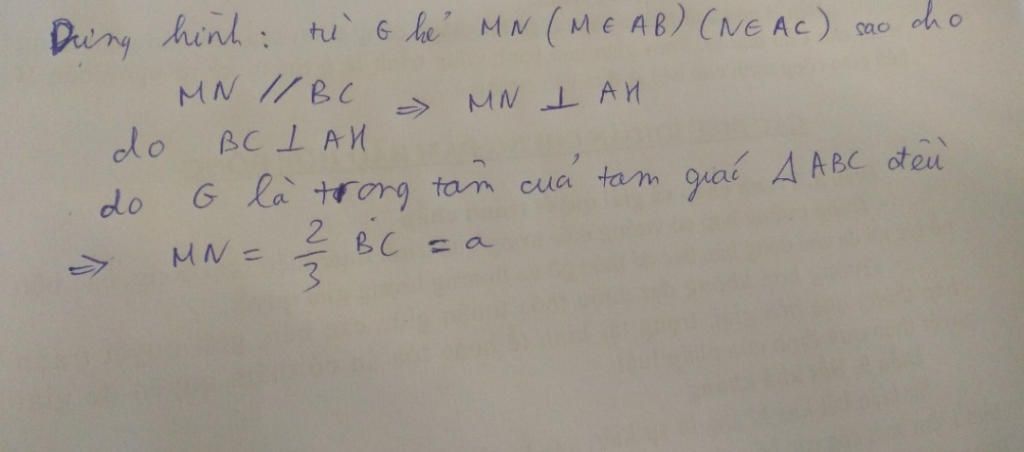 Dựng hình: từ G kẻ MN (M ∈ AB) (N ∈ AC) sao cho
MN // BC ⇒ MN ⊥ AH
do BC ⊥ AH
do G là trọng tâm của tam giác Δ ABC đều
⇒ MN = 2/3 BC = a